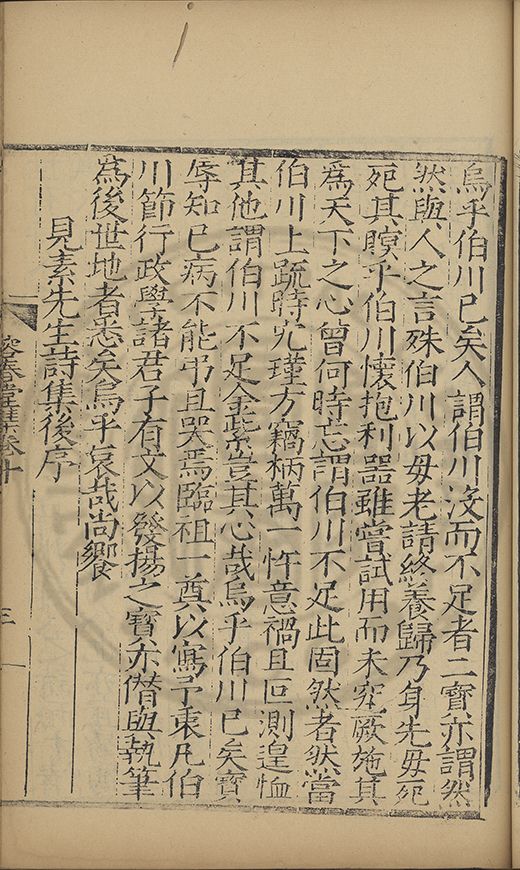 烏乎伯川已矣人謂伯川沒而不足者二寶亦謂然
然與人之言殊伯川以母老請終養歸乃身先母死
死其瞑乎伯川懷抱利器雖嘗試用而未究厥施其
爲天下之心曾何時忘謂伯川不足此固然者然當
伯川上䟽時宄瑾方竊柄萬一忤意禍且叵測遑恤
其他謂伯川不足金紫豈其心哉烏乎伯川已矣寶
辱知已病不能弔且哭焉臨祖一奠以寫予衷凡伯
川節行政學諸君子有文以發揚之寶亦僣與執筆
爲後世地者悉矣烏乎哀哉尚饗
見素先生詩集後序
容春堂集卷十
三